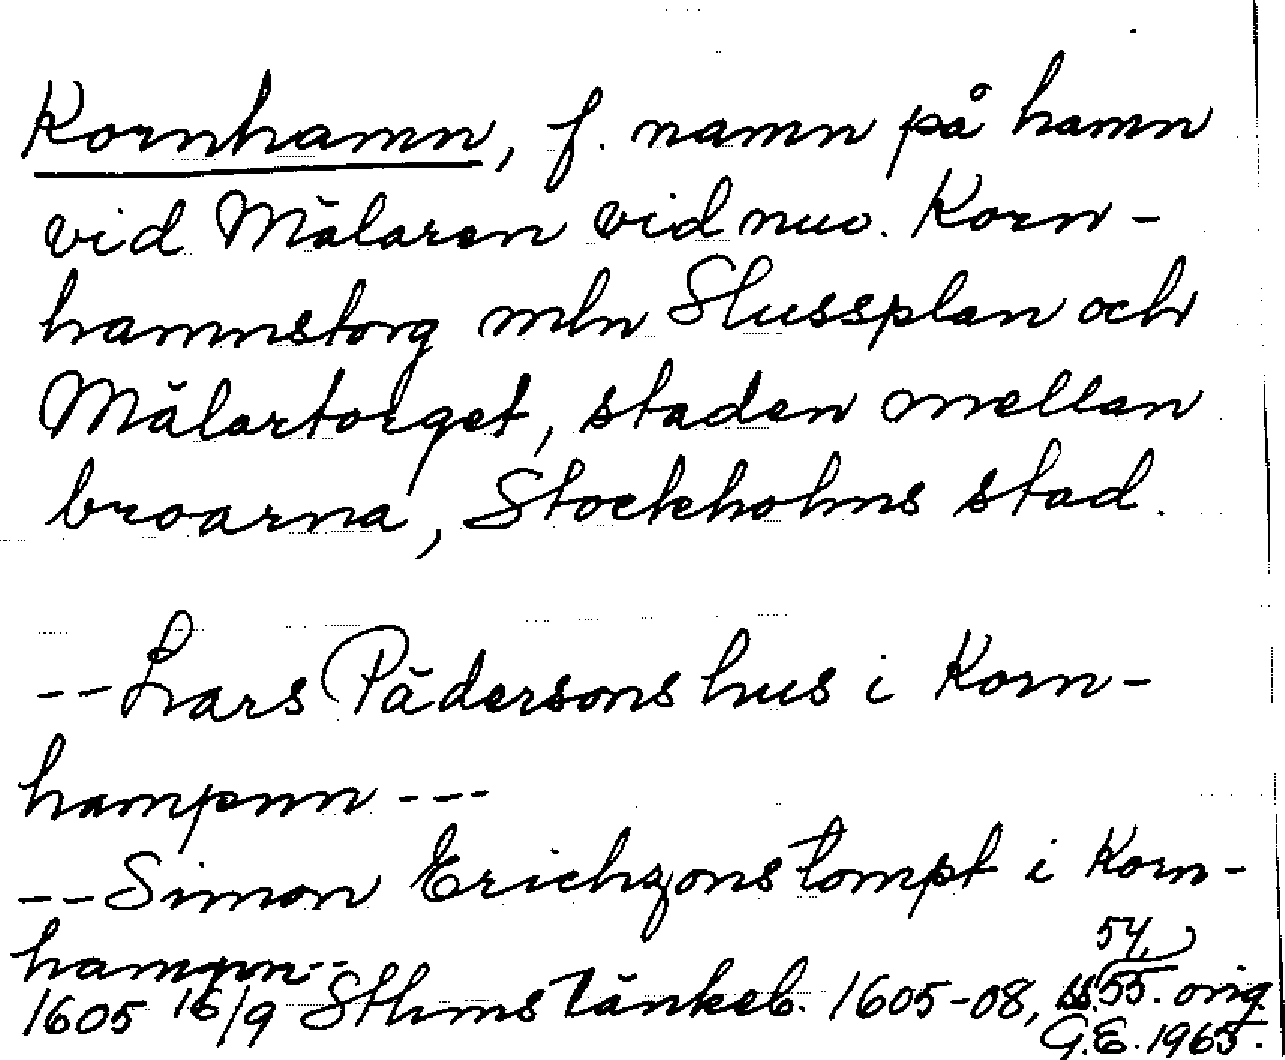 Kornhamn, f. namn på hamn
vid Mälaren vid nuv. Korn-
hamnstorg mln Slussplan och
Mälartorget, staden mellan
broarna, Stockholms stad.
--Lars Pädersons hus i Korn-
hampnn ---
--Simon Erichzons tompt i Korn-
hampn--
54,
1605 16/9 Sthms tänkeb. 1605-08, ss. 55. orig.
G.E. 1965.